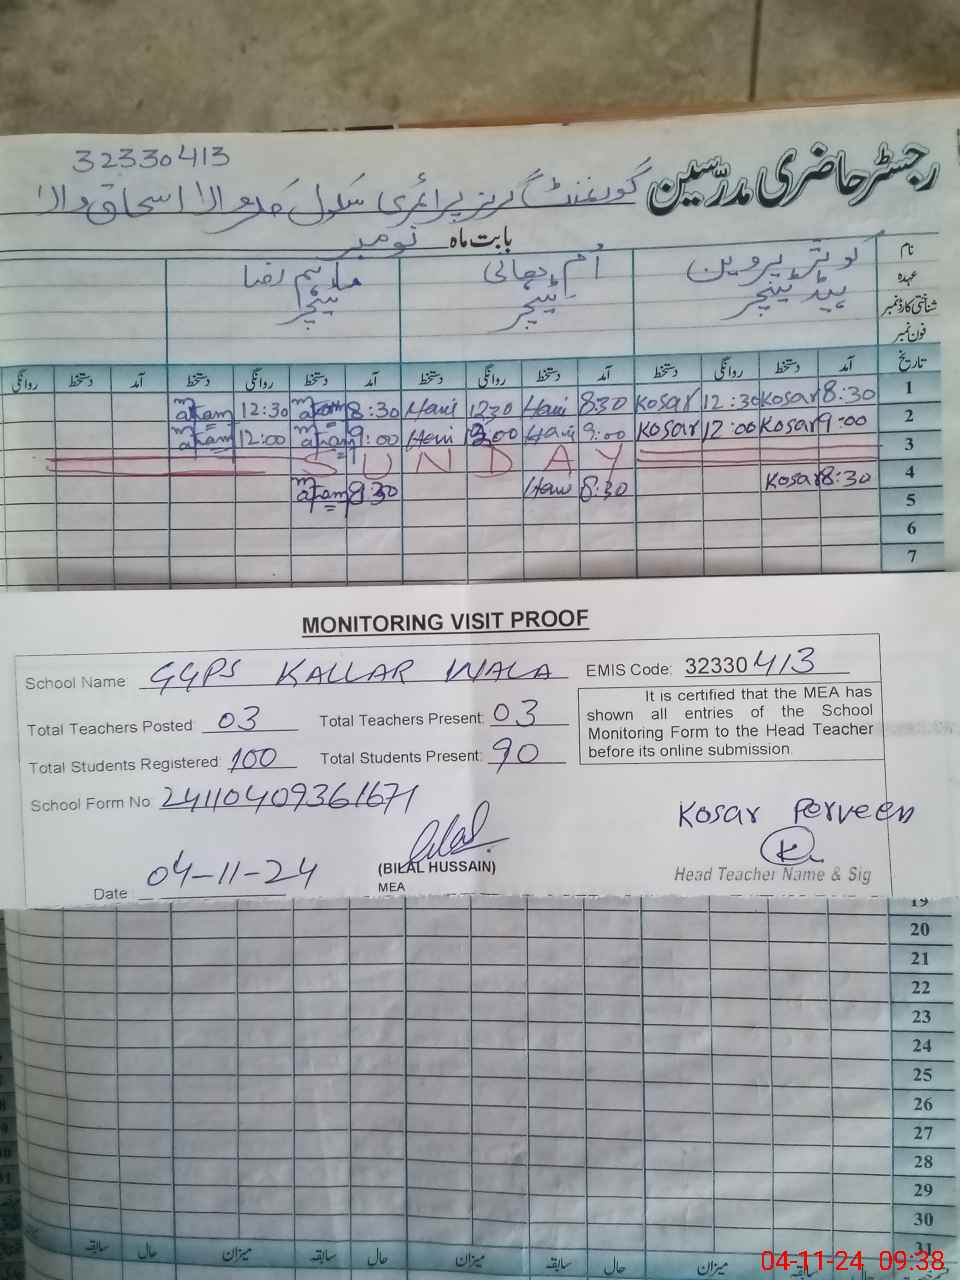 32330413
رجسٹر حاضری مدرسین
گورنمنٹ گرلز پرائمری سکول کلر والا اسحاق والا
بابت ماہ نومبر
نام کوثر پروین اُم ہانی ماہم رضا
عہدہ ہیڈ ٹیچر ٹیچر ٹیچر
شناختی کارڈ نمبر
فون نمبر
تاریخ آمد دستخط روانگی دستخط آمد دستخط روانگی دستخط آمد دستخط روانگی دستخط آمد دستخط روانگی
1 8:30 Kosar 12:30 Kosar 8:30 Hani 12:30 Hani 8:30 maham 12:30 maham
2 9:00 Kosar 12:00 Kosar 9:00 Hani 12:00 Hani 9:00 maham 12:00 maham
3 SUNDAY
4 8:30 Kosar 8:30 Hani 8:30 maham
5
6
7
MONITORING VISIT PROOF
School Name GGPS KALLAR WALA EMIS Code: 32330413
Total Teachers Posted: 03 Total Teachers Present: 03
Total Students Registered: 100 Total Students Present: 90
School Form No: 24110409361671
It is certified that the MEA has
shown all entries of the School
Monitoring Form to the Head Teacher
before its online submission.
Kosar Perveen
Bilal
K
(BILAL HUSSAIN)
MEA
Head Teacher Name & Sig
Date 04-11-24
19
20
21
22
23
24
25
26
27
28
29
30
31
حال سابقہ میزان حال سابقہ میزان حال سابقہ میزان حال سابقہ
04-11-24 09:38